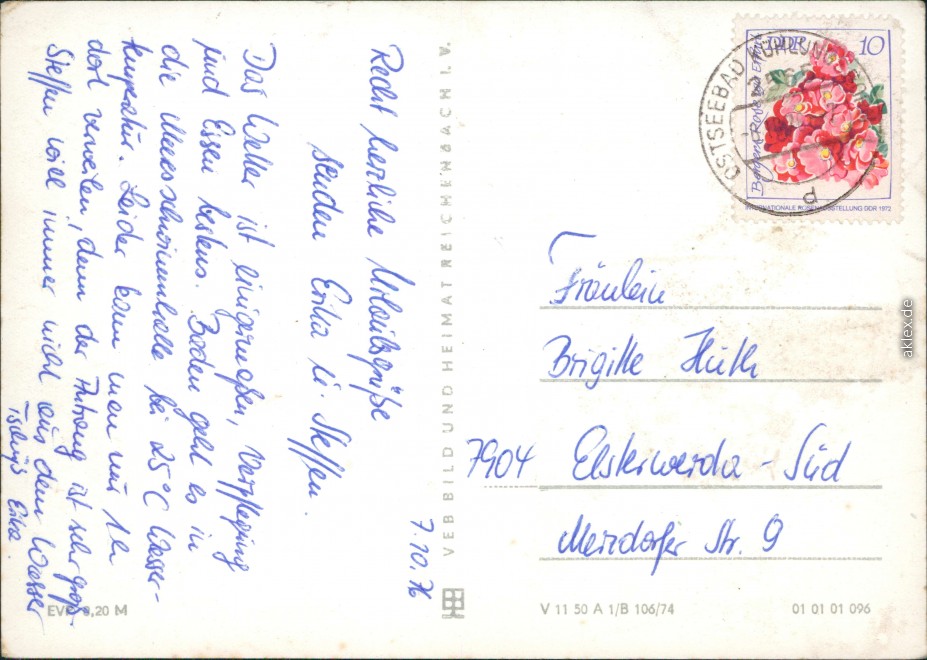 7.10.76
Recht herzliche Urlaubsgrüße
senden Erika u. Steffen.
Das Wetter ist einigermaßen, Verpflegung
und Essen bestens. Baden geht es in
die Meeresschwimmhalle bei 25°C Wasser-
temperatur. Leider kann man nur 1 h
dort verweilen, denn der Andrang ist sehr groß.
Steffen will immer nicht aus dem Wasser
Tschüß Erika
VEB BILD UND HEIMAT REICHENBACH I. V.
EVP 0,20 M
DDR 10
INTERNATIONALE ROSENAUSSTELLUNG DDR 1972
OSTSEEBAD KÜHLUNGS
d
Fräulein
Brigitte Huth
7904 Elsterwerda-Süd
Merzdorfer Str. 9
V 11 50 A 1/B 106/74
01 01 01 096
aklex.de